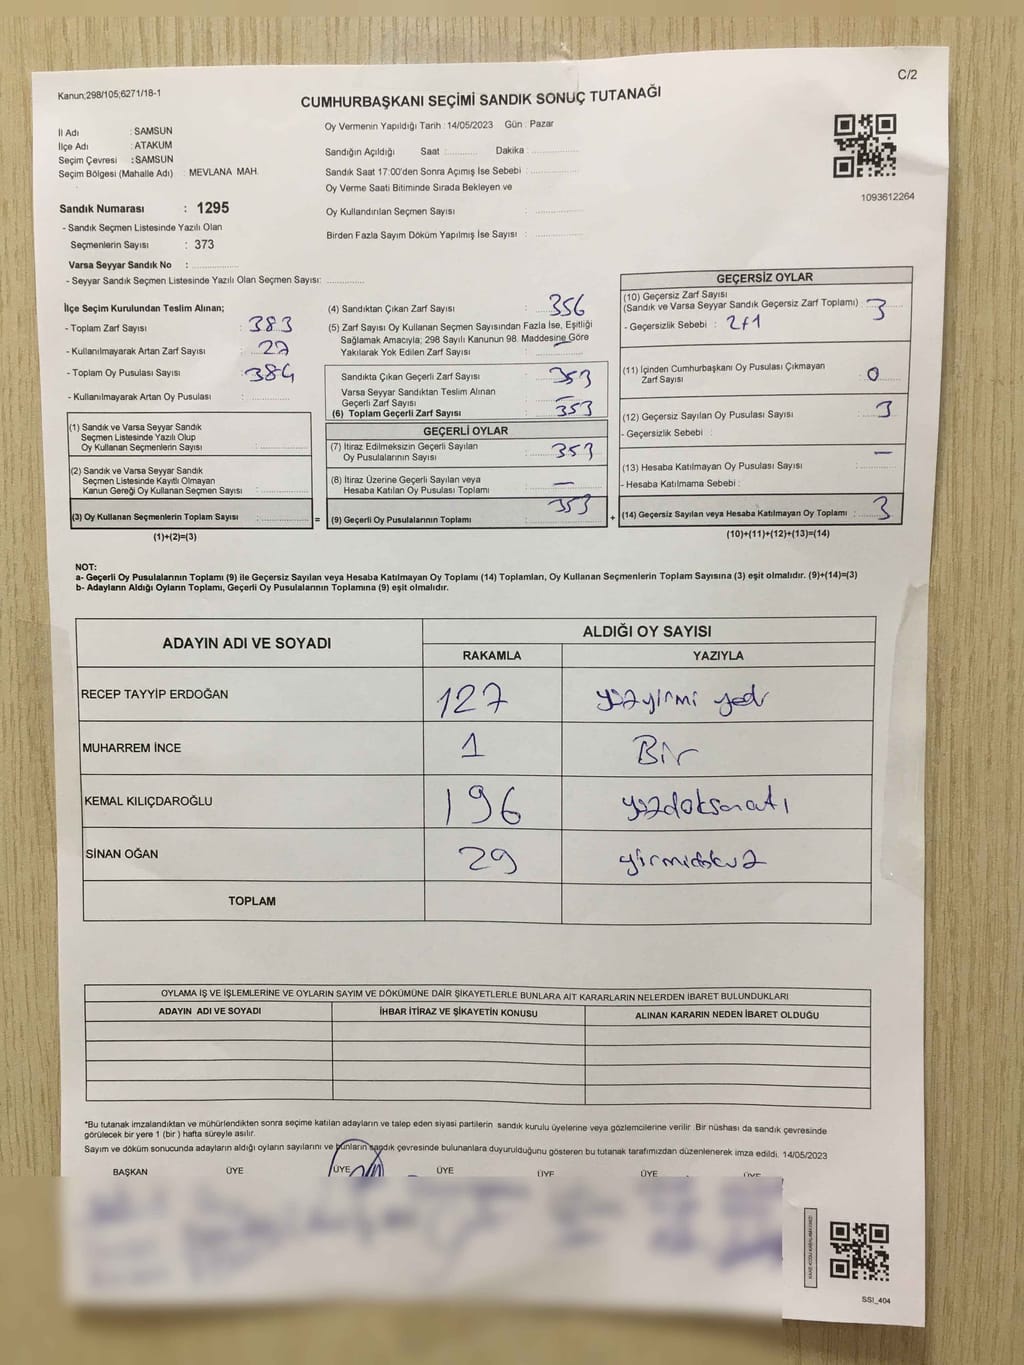 C/2
Kanun;298/105;6271/18-1
CUMHURBAŞKANI SEÇİMİ SANDIK SONUÇ TUTANAĞI
İl Adı : SAMSUN
İlçe Adı : ATAKUM
Seçim Çevresi : SAMSUN
Seçim Bölgesi (Mahalle Adı) : MEVLANA MAH.
Oy Vermenin Yapıldığı Tarih : 14/05/2023 Gün : Pazar
Sandığın Açıldığı Saat : Dakika :
Sandık Saat 17:00'den Sonra Açımış İse Sebebi :
Oy Verme Saati Bitiminde Sırada Bekleyen ve
Oy Kullandırılan Seçmen Sayısı :
Birden Fazla Sayım Döküm Yapılmış İse Sayısı :
1093612264
Sandık Numarası : 1295
- Sandık Seçmen Listesinde Yazılı Olan
Seçmenlerin Sayısı : 373
Varsa Seyyar Sandık No :
- Seyyar Sandık Seçmen Listesinde Yazılı Olan Seçmen Sayısı:
İlçe Seçim Kurulundan Teslim Alınan;
- Toplam Zarf Sayısı : 383
- Kullanılmayarak Artan Zarf Sayısı : 27
- Toplam Oy Pusulası Sayısı : 384
- Kullanılmayarak Artan Oy Pusulası :
(1) Sandık ve Varsa Seyyar Sandık
Seçmen Listesinde Yazılı Olup
Oy Kullanan Seçmenlerin Sayısı :
(2) Sandık ve Varsa Seyyar Sandık
Seçmen Listesinde Kayıtlı Olmayan
Kanun Gereği Oy Kullanan Seçmen Sayısı :
(3) Oy Kullanan Seçmenlerin Toplam Sayısı : =
(1)+(2)=(3)
(4) Sandıktan Çıkan Zarf Sayısı : 356
(5) Zarf Sayısı Oy Kullanan Seçmen Sayısından Fazla İse, Eşitliği
Sağlamak Amacıyla; 298 Sayılı Kanunun 98. Maddesine Göre
Yakılarak Yok Edilen Zarf Sayısı : —
Sandıkta Çıkan Geçerli Zarf Sayısı : 353
Varsa Seyyar Sandıktan Teslim Alınan
Geçerli Zarf Sayısı : —
(6) Toplam Geçerli Zarf Sayısı : 353
GEÇERLİ OYLAR
(7) İtiraz Edilmeksizin Geçerli Sayılan
Oy Pusulalarının Sayısı : 353
(8) İtiraz Üzerine Geçerli Sayılan veya
Hesaba Katılan Oy Pusulası Toplamı : —
(9) Geçerli Oy Pusulalarının Toplamı : 353 +
GEÇERSİZ OYLAR
(10) Geçersiz Zarf Sayısı
(Sandık ve Varsa Seyyar Sandık Geçersiz Zarf Toplamı) : 3
- Geçersizlik Sebebi : 2+1
(11) İçinden Cumhurbaşkanı Oy Pusulası Çıkmayan
Zarf Sayısı : 0
(12) Geçersiz Sayılan Oy Pusulası Sayısı : 3
- Geçersizlik Sebebi :
(13) Hesaba Katılmayan Oy Pusulası Sayısı : —
- Hesaba Katılmama Sebebi :
(14) Geçersiz Sayılan veya Hesaba Katılmayan Oy Toplamı : 3
(10)+(11)+(12)+(13)=(14)
NOT:
a- Geçerli Oy Pusulalarının Toplamı (9) ile Geçersiz Sayılan veya Hesaba Katılmayan Oy Toplamı (14) Toplamları, Oy Kullanan Seçmenlerin Toplam Sayısına (3) eşit olmalıdır. (9)+(14)=(3)
b- Adayların Aldığı Oyların Toplamı, Geçerli Oy Pusulalarının Toplamına (9) eşit olmalıdır.
ADAYIN ADI VE SOYADI ALDIĞI OY SAYISI
RAKAMLA YAZIYLA
RECEP TAYYİP ERDOĞAN 127 yüzyirmi yedi
MUHARREM İNCE 1 Bir
KEMAL KILIÇDAROĞLU 196 yüzdoksanaltı
SİNAN OĞAN 29 yirmidokuz
TOPLAM
OYLAMA İŞ VE İŞLEMLERİNE VE OYLARIN SAYIM VE DÖKÜMÜNE DAİR ŞİKAYETLERLE BUNLARA AİT KARARLARIN NELERDEN İBARET BULUNDUKLARI
ADAYIN ADI VE SOYADI İHBAR İTİRAZ VE ŞİKAYETİN KONUSU ALINAN KARARIN NEDEN İBARET OLDUĞU
*Bu tutanak imzalandıktan ve mühürlendikten sonra seçime katılan adayların ve talep eden siyasi partilerin sandık kurulu üyelerine veya gözlemcilerine verilir. Bir nüshası da sandık çevresinde
görülecek bir yere 1 (bir ) hafta süreyle asılır.
Sayım ve döküm sonucunda adayların aldığı oyların sayılarını ve bunların sandık çevresinde bulunanlara duyurulduğunu gösteren bu tutanak tarafımızdan düzenlenerek imza edildi. 14/05/2023
BAŞKAN ÜYE ÜYE ÜYE ÜYE ÜYE ÜYE
SSI_404